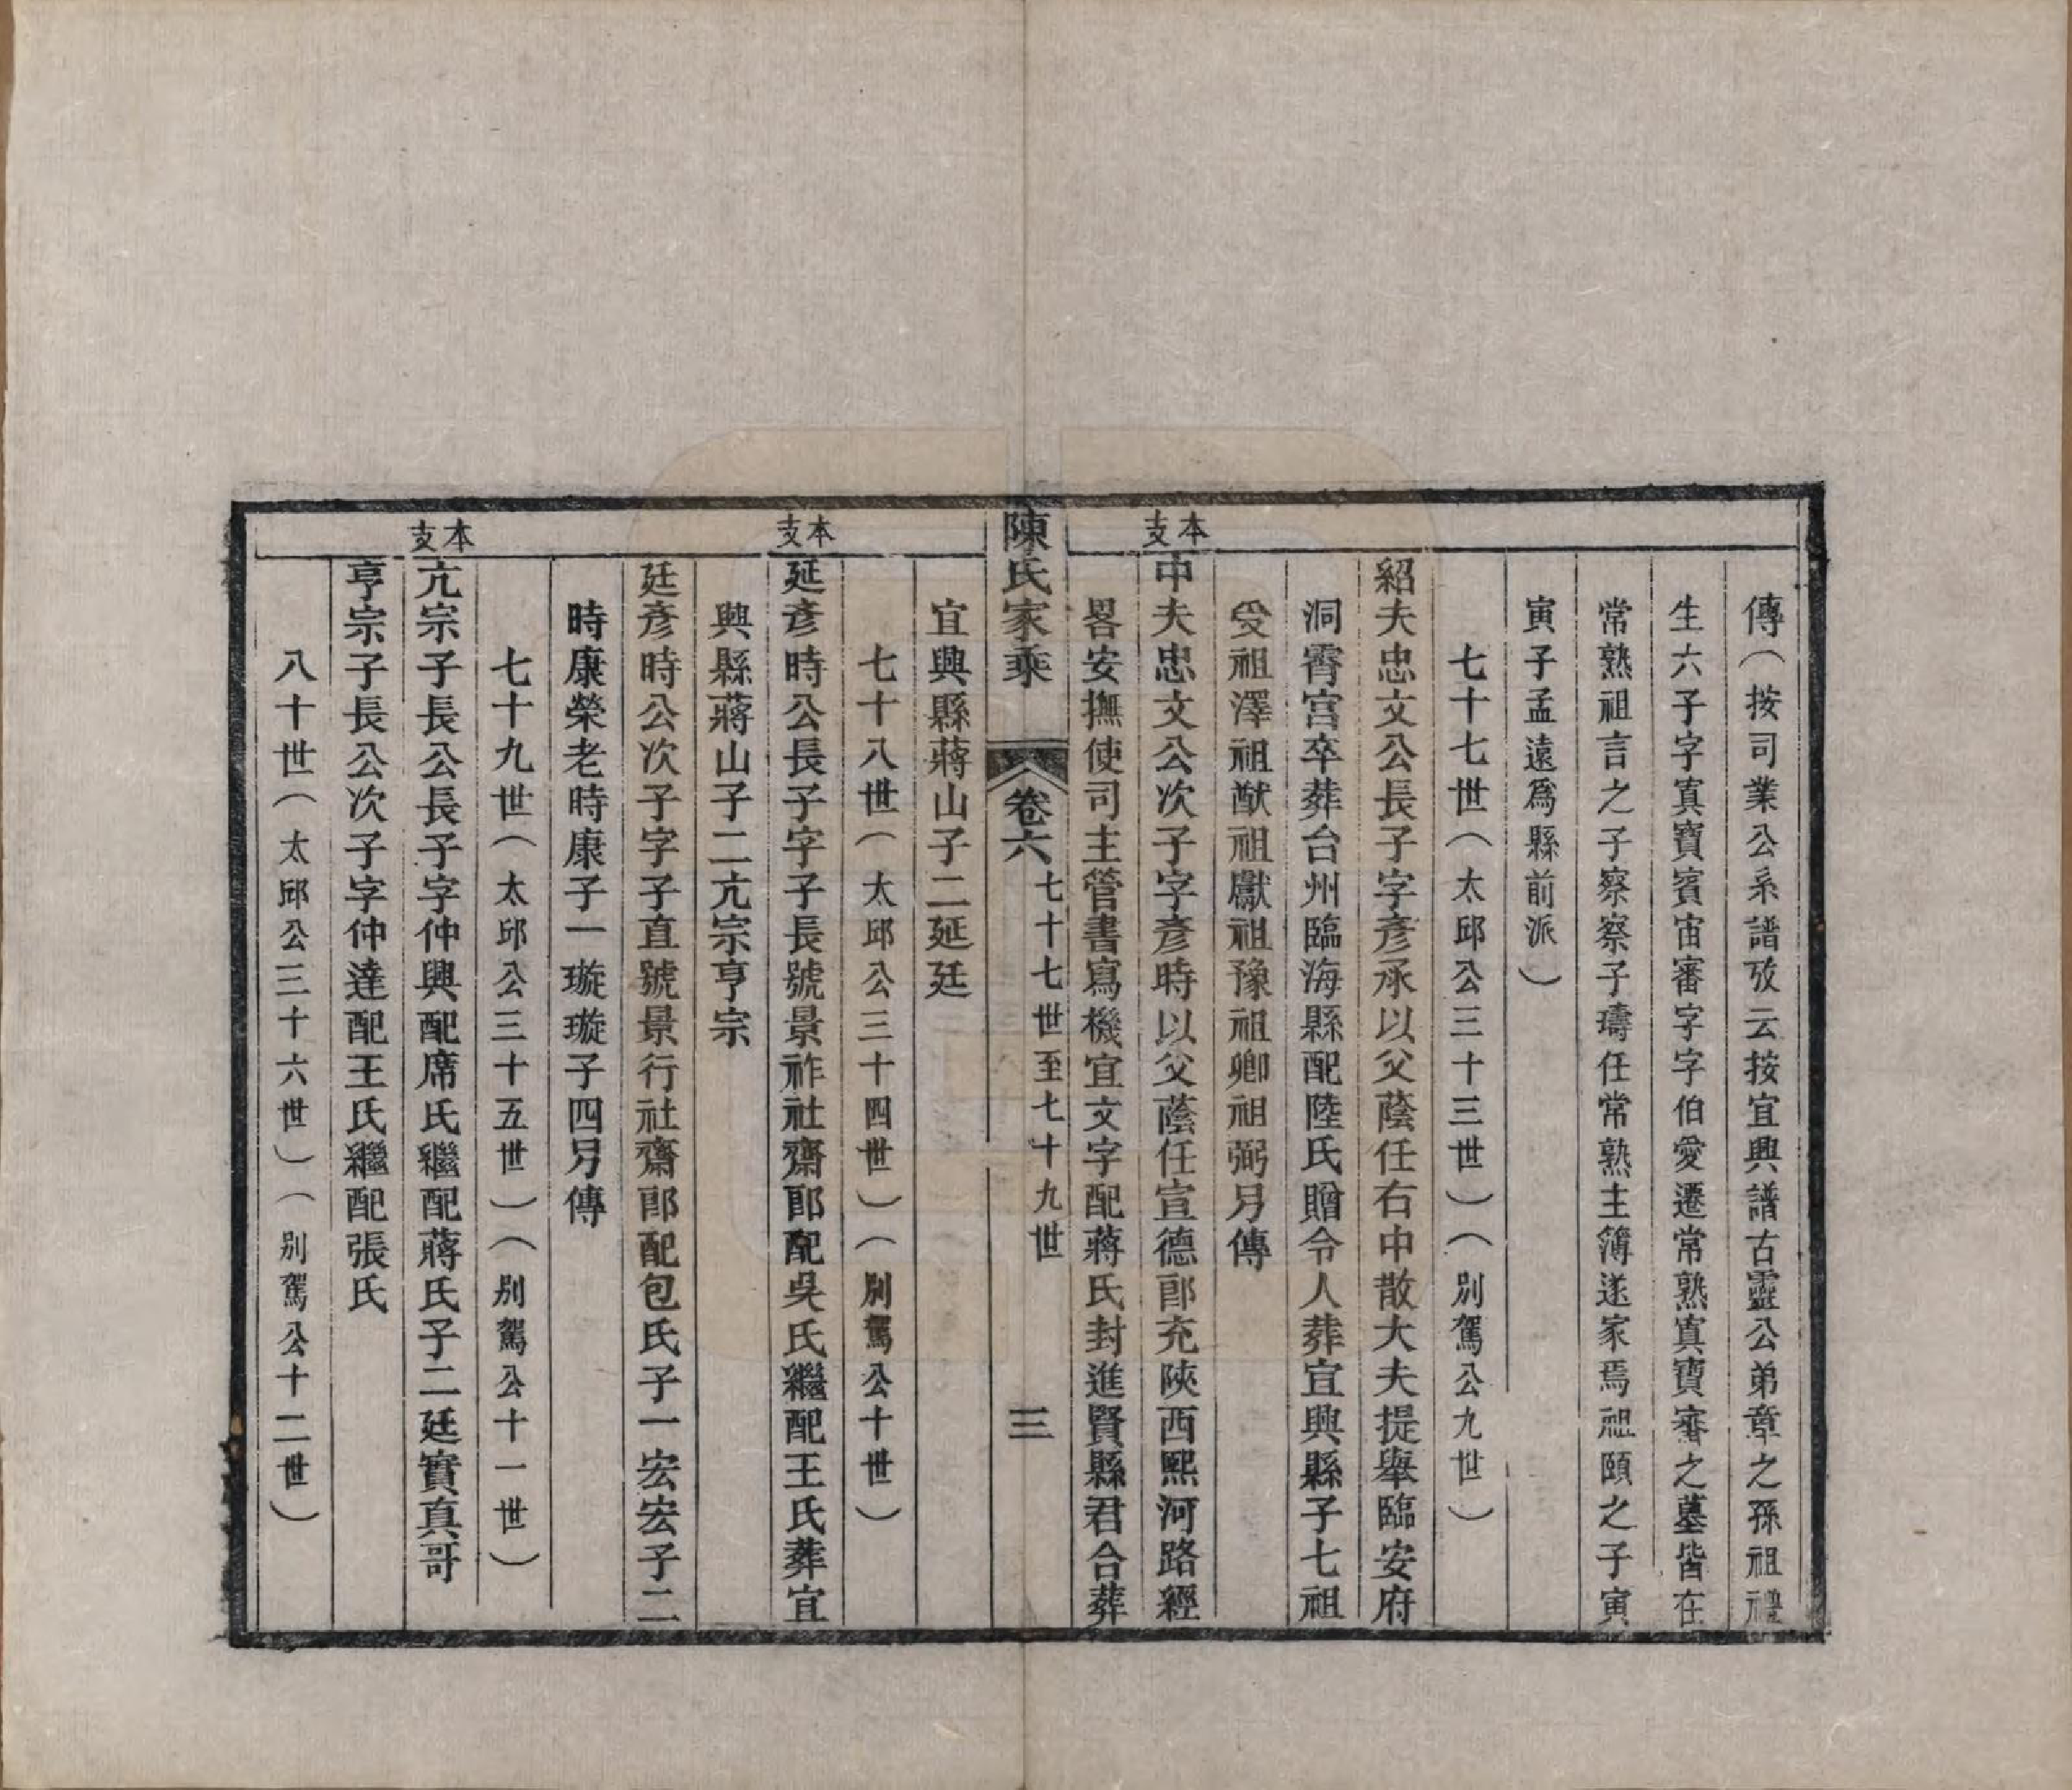 傳(按司業公系譜攷云按宜興譜古靈公弟章之孫祖禮
生六子字寘寶賓宙審字字伯愛遷常熟寘寶審之墓皆在
常熟祖言之子察察子璹任常熟主簿遂家焉祖頤之子寅
寅子孟遠爲縣前派)
七十七世(太邱公三十三世)(別駕公九世)
紹夫忠文公長子字彥承以父蔭任右中散大夫提舉臨安府
洞霄宮卒葬台州臨海縣配陸氏贈令人葬宜興縣子七祖
受祖澤祖猷祖獻祖豫祖卿祖弼另傳
本支
中夫忠文公次子字彥時以父蔭任宣德郎充陝西熙河路經
畧安撫使司主管書寫機宜文字配蔣氏封進賢縣君合葬
陳氏家乘
卷六
七十七世至七十九世
三
宜興縣蔣山子二延廷
七十八世(太邱公三十四世)(別駕公十世)
本支
延彥時公長子字子長號景祚社齋郎配吳氏繼配王氏葬宜
興縣蔣山子二亢宗亨宗
廷彥時公次子字子直號景行社齋郎配包氏子一宏宏子二
時康榮老時康子一璇璇子四另傳
七十九世(太邱公三十五世)(別駕公十一世)
本支
亢宗子長公長子字仲興配席氏繼配蔣氏子二廷實真哥
亨宗子長公次子字仲達配王氏繼配張氏
八十世(太邱公三十六世)(別駕公十二世)